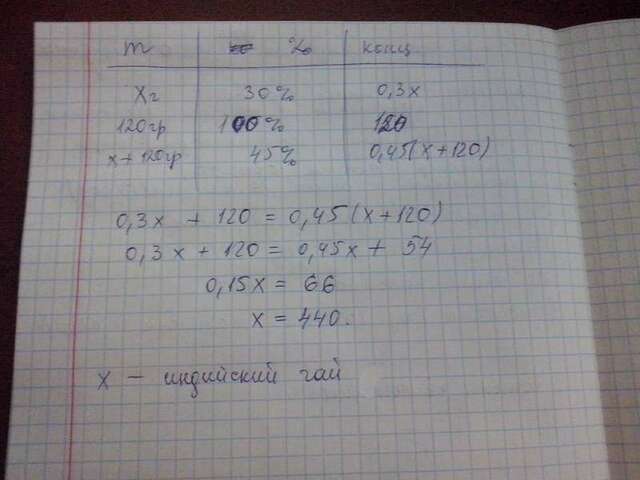 m % конц
xг 30% 0,3x
120гр 100% 120
x + 120гр 45% 0,45(x+120)
0,3x + 120 = 0,45(x+120)
0,3x + 120 = 0,45x + 54
0,15x = 66
x = 440.
x – индийский чай